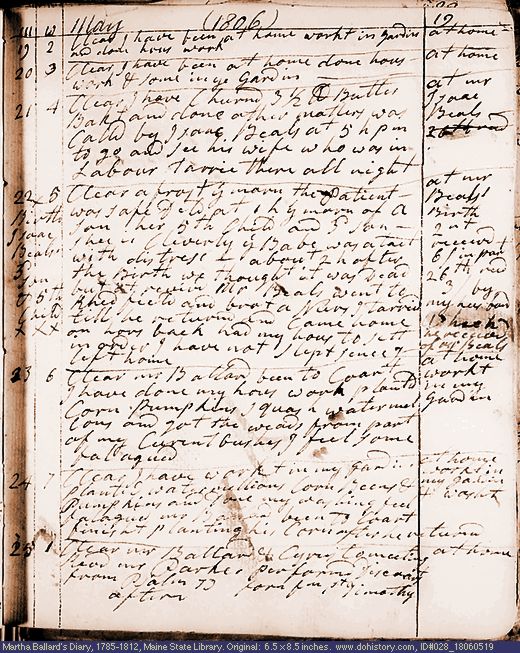 m w May (1806) 19
19 2 Clear I have been at home workt in gardin at home
and done hous work
20 3 Clear I have been at home done hous at home
work & some in ye Gardin
21 4 Clear I have Churnd 3 1/2 lb Butter at mr
Bakt and done other matters was Isaac
Calld by Isaac Beals at 5 h pm Beals
to go and see his wife who was in
Labour tarried there all night
22 5 Clear a frosty morn the Patient at mr
Birth was safe Delivrd at 1 h morn of a Beals
Isaac son her 5th Child and 3d son Birth
Beals she is Cleverly ye Babe was atact 2nt
3d with distress about 2 h after received
son the Birth we thought it was Dead
& 5th but it revivd Mr Beals went to
Child and brot a Ners I tarried by
X X till he returnd and Came home
on hors back had my hous to sett
in order I have not slept sence I of mr Beals
left home at home
23 6 Clear mr Ballard been to Coart workt
I have done my hous work plantd in my
Corn Pumpkins Squash & water mel gardin
lons and got the weads from part
of my Curent bushes I feel some
fatagued
24 7 Clear I have workt in my gardin at home
plantid water millions Corn workt in
Pumpkins and done my washing feel my gardin
fatagued mr Ballard been to Coart & washt
finisht planting his Corn since returnd
25 1 Clear mr Ballard & Cyrus at home
head mr Parker perform Discoars
from Psalm forn
aftern Timothy
Martha Ballard's Diary, 1785-1812, Maine State Library. Original: 6.5 x 8.5 inches. www.dohistory.com, ID#028_18060519